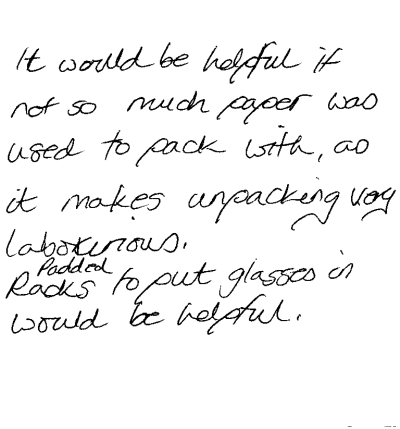 It would be helpful if
not so much paper was
used to pack with, as
it makes unpacking very
laboturious.
Padded
Racks to put glasses in
would be helpful.